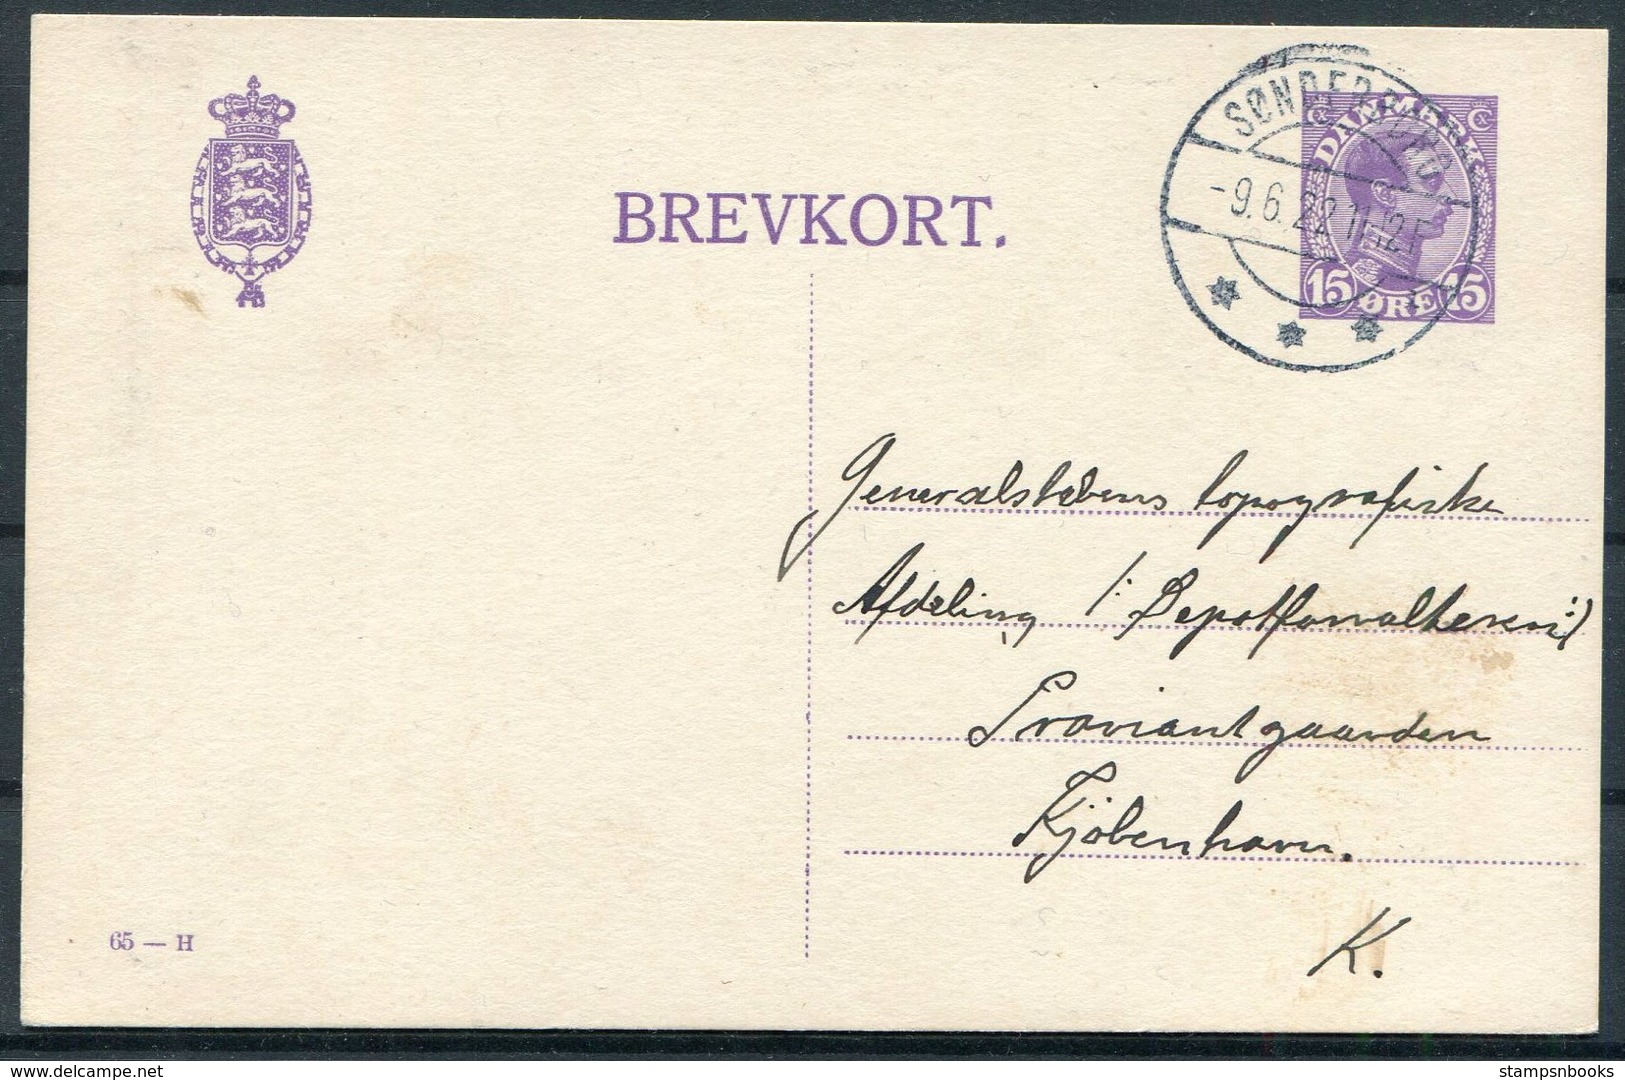 BREVKORT.
SØNDERBORG
-9.6.22 11-12F
DANMARK
15 ØRE 15
Generalstabens topografiske
Afdeling /: Depotforvalteren :/
Proviantgaarden
Kjöbenhavn.
K.
65 — H
delcampe.net
stampsnbooks